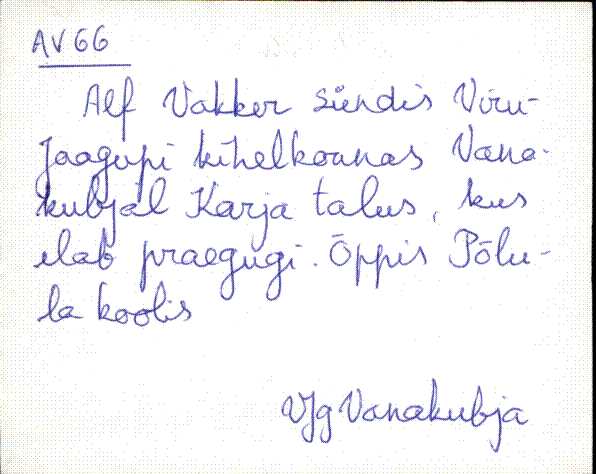 AV 66
Alf Vakker sündis Viru-
Jaagupi kihelkonnas Vana-
kubjal Karja talus, kus
elab praegugi. Õppis Põlu-
la koolis
VJg Vanakubja